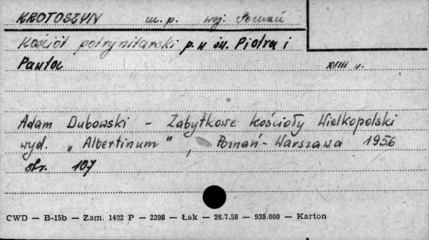 KROTOSZYN m.p. woj. Poznań
Kościół potrynitarski p.w św. Piotra i
Pawła XVIII w.
Adam Dubowski - Zabytkowe kościoły Wielkopolski
wyd. „Albertinum", Poznań - Warszawa 1956
str. 107
CWD — B-15b — Zam. 1402 P — 2398 — Łak — 26.7.58 — 935.000 — Karton